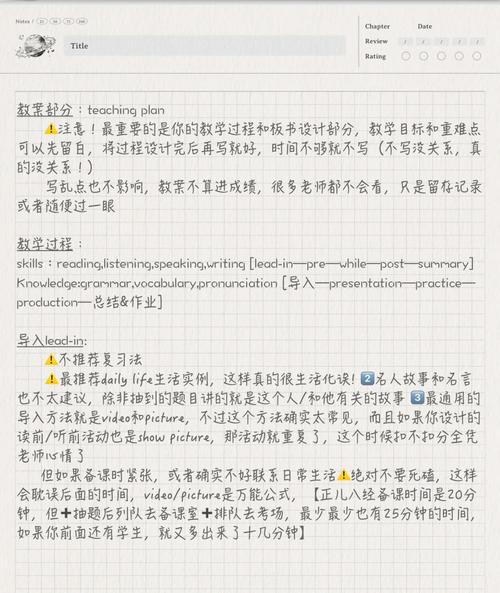 Notes /
Chapter Date
Title
Review / / / / /
Rating
教案部分：teaching plan
⚠️注意！最重要的是你的教学过程和板书设计部分，教学目标和重难点
可以先留白，将过程设计完后再写就好，时间不够就不写（不写没关系，真
的没关系！）
写乱点也不影响，教案不算进成绩，很多老师都不会看，只是留存记录
或者随便过一眼
教学过程：
skills：reading,listening,speaking,writing [lead-in—pre—while—post—summary]
Knowledge:grammar,vocabulary,pronunciation [导入—presentation—practice—
production—总结&作业]
导入lead-in:
⚠️不推荐复习法
⚠️最推荐daily life生活实例，这样真的很生活化诶! 2️⃣名人故事和名言
也不太建议，除非抽到的题目讲的就是这个人/和他有关的故事 3️⃣最通用的
导入方法就是video和picture，不过这个方法确实太常见，而且如果你设计的
读前/听前活动也是show picture，那活动就重复了，这个时候扣不扣分全凭
老师心情了
但如果备课时紧张，或者确实不好联系日常生活⚠️绝对不要死磕，这样
会耽误后面的时间，video/picture是万能公式，【正儿八经备课时间是20分
钟，但➕抽题后列队去备课室➕排队去考场，最少最少也有25分钟的时间，
如果你前面还有学生，就又多出来了十几分钟】